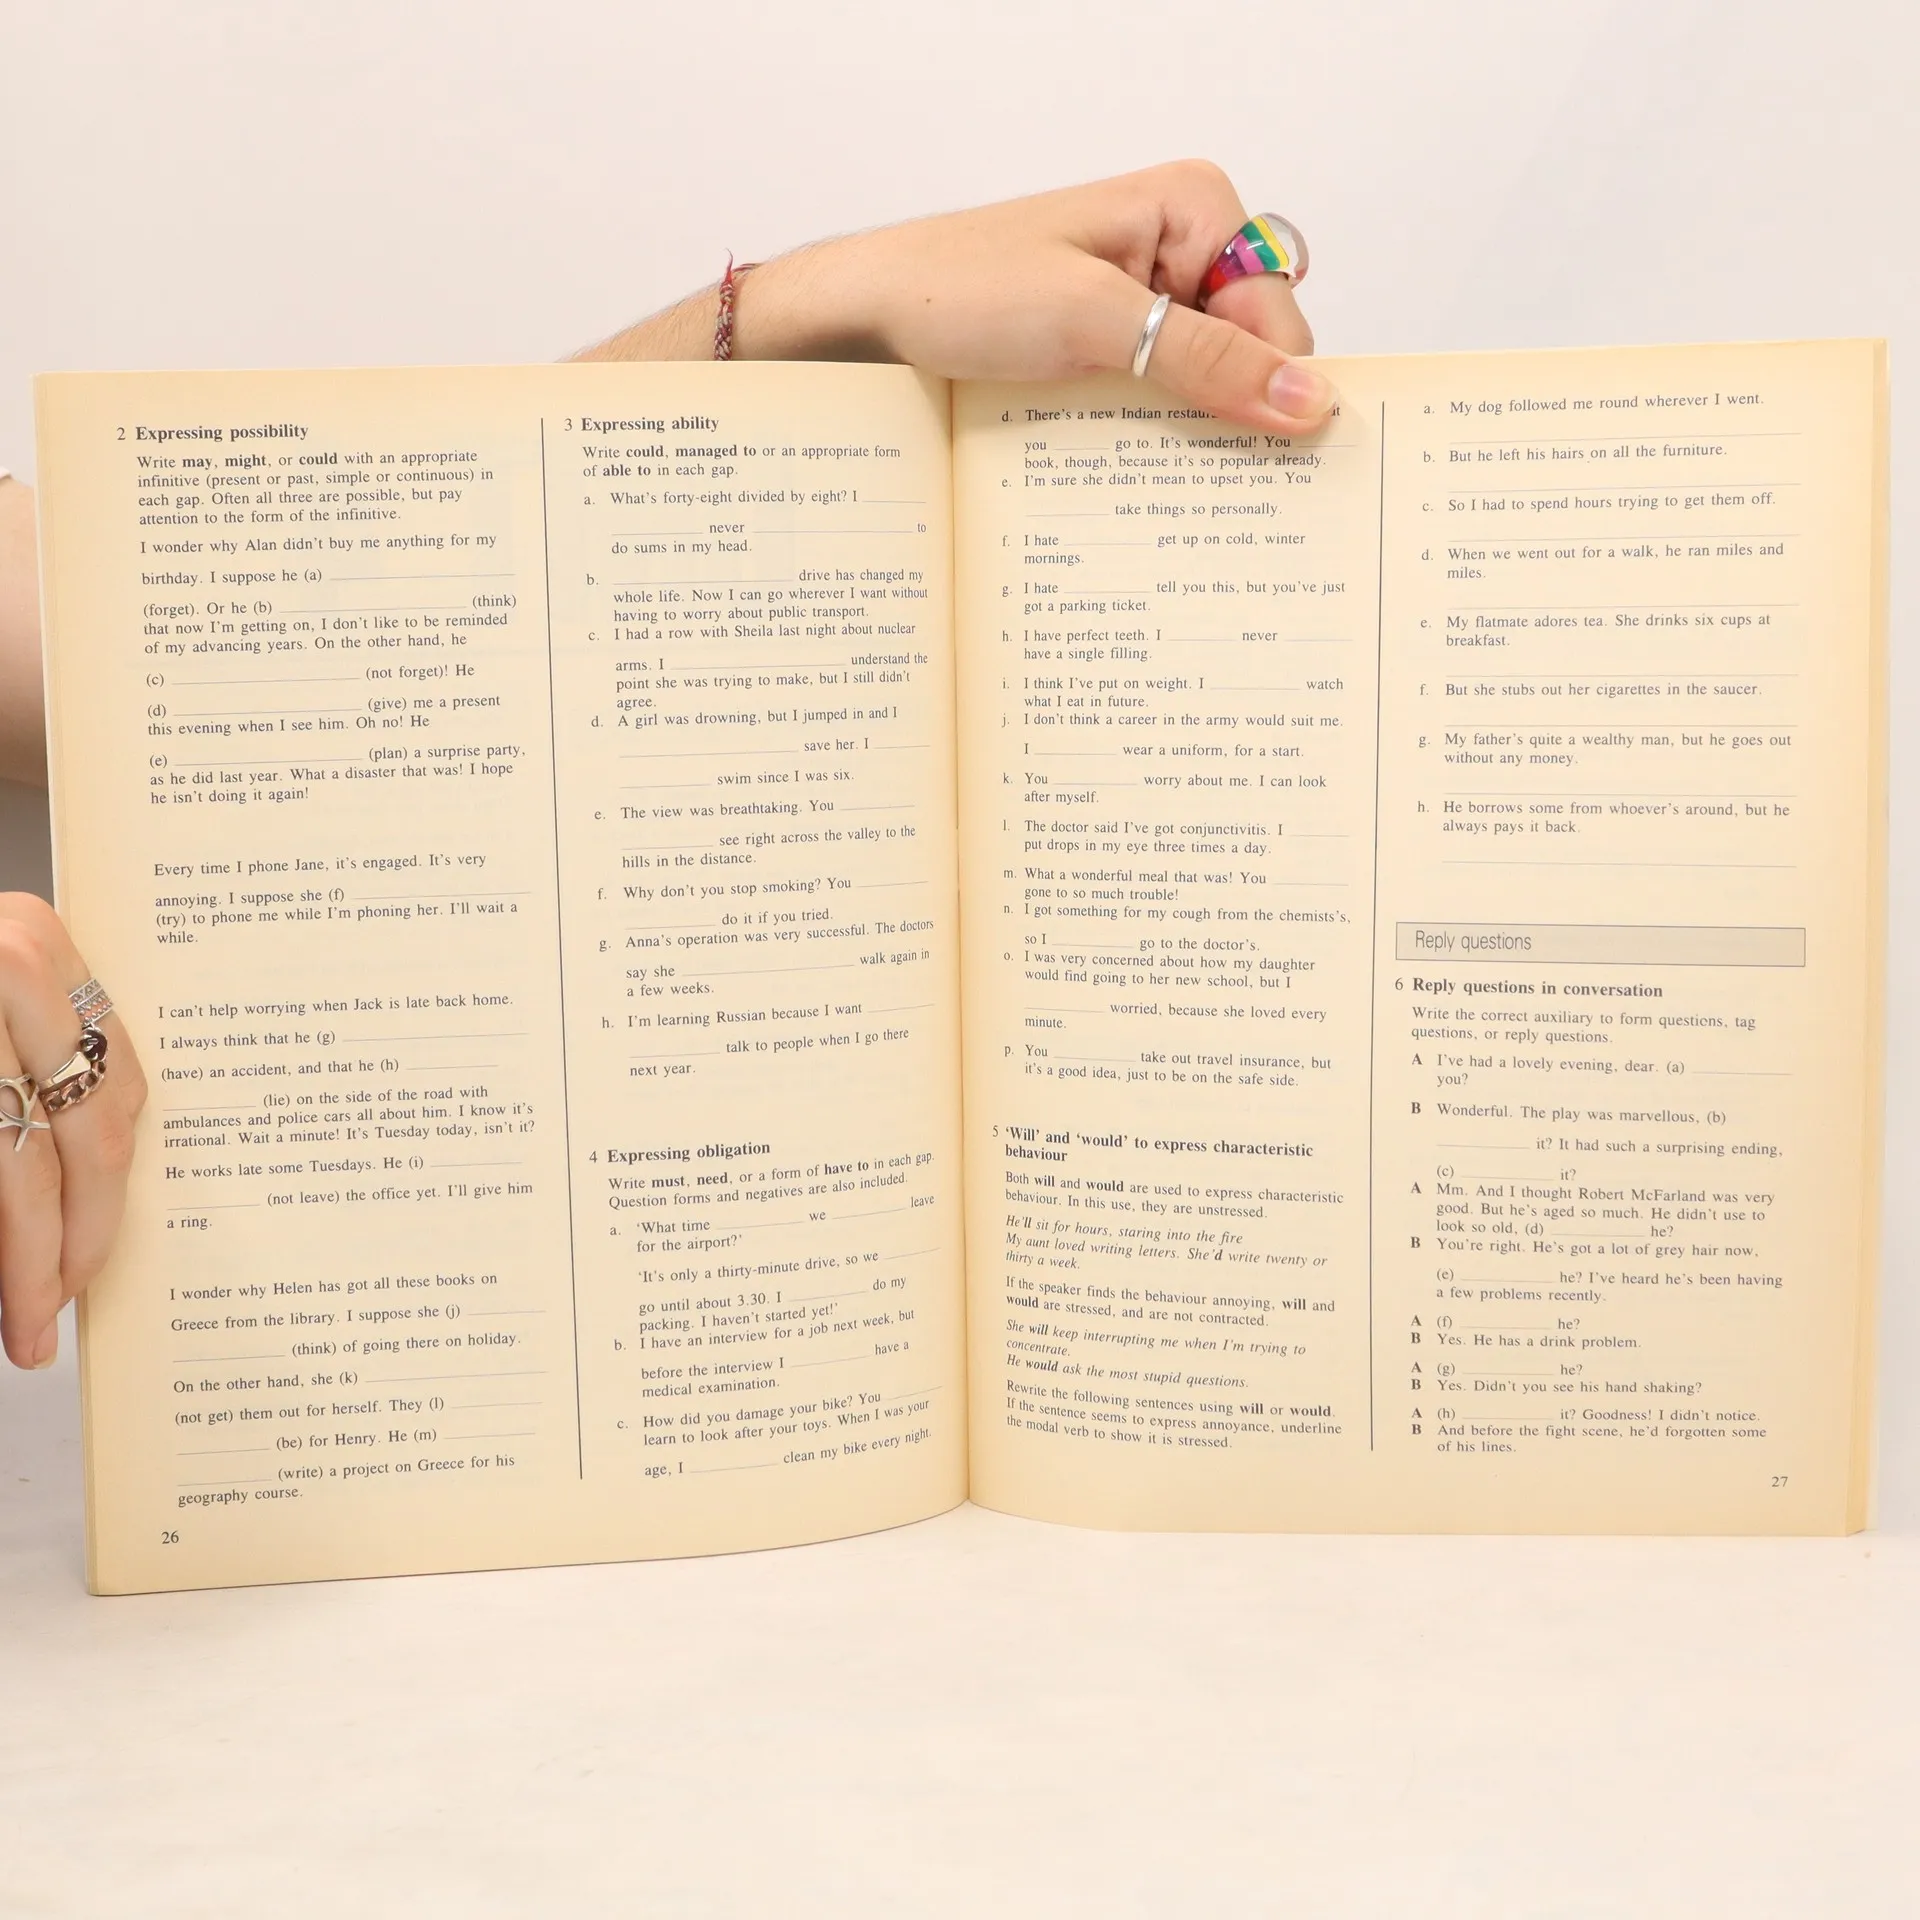 2 Expressing possibility
Write may, might, or could with an appropriate
infinitive (present or past, simple or continuous) in
each gap. Often all three are possible, but pay
attention to the form of the infinitive.
I wonder why Alan didn't buy me anything for my
birthday. I suppose he (a)
(forget). Or he (b) (think)
that now I'm getting on, I don't like to be reminded
of my advancing years. On the other hand, he
(c) (not forget)! He
(d) (give) me a present
this evening when I see him. Oh no! He
(e) (plan) a surprise party,
as he did last year. What a disaster that was! I hope
he isn't doing it again!
Every time I phone Jane, it's engaged. It's very
annoying. I suppose she (f)
(try) to phone me while I'm phoning her. I'll wait a
while.
I can't help worrying when Jack is late back home.
I always think that he (g)
(have) an accident, and that he (h)
(lie) on the side of the road with
ambulances and police cars all about him. I know it's
irrational. Wait a minute! It's Tuesday today, isn't it?
He works late some Tuesdays. He (i)
(not leave) the office yet. I'll give him
a ring.
I wonder why Helen has got all these books on
Greece from the library. I suppose she (j)
(think) of going there on holiday.
On the other hand, she (k)
(not get) them out for herself. They (l)
(be) for Henry. He (m)
(write) a project on Greece for his
geography course.
26
3 Expressing ability
Write could, managed to or an appropriate form
of able to in each gap.
a. What's forty-eight divided by eight? I
never to
do sums in my head.
b. drive has changed my
whole life. Now I can go wherever I want without
having to worry about public transport.
c. I had a row with Sheila last night about nuclear
arms. I understand the
point she was trying to make, but I still didn't
agree.
d. A girl was drowning, but I jumped in and I
save her. I
swim since I was six.
e. The view was breathtaking. You
see right across the valley to the
hills in the distance.
f. Why don't you stop smoking? You
do it if you tried.
g. Anna's operation was very successful. The doctors
say she walk again in
a few weeks.
h. I'm learning Russian because I want
talk to people when I go there
next year.
4 Expressing obligation
Write must, need, or a form of have to in each gap.
Question forms and negatives are also included.
a. 'What time we leave
for the airport?'
'It's only a thirty-minute drive, so we
go until about 3.30. I do my
packing. I haven't started yet!'
b. I have an interview for a job next week, but
before the interview I have a
medical examination.
c. How did you damage your bike? You
learn to look after your toys. When I was your
age, I clean my bike every night.
d. There's a new Indian
you go to. It's wonderful! You
book, though, because it's so popular already.
e. I'm sure she didn't mean to upset you. You
take things so personally.
f. I hate get up on cold, winter
mornings.
g. I hate tell you this, but you've just
got a parking ticket.
h. I have perfect teeth. I never
have a single filling.
i. I think I've put on weight. I watch
what I eat in future.
j. I don't think a career in the army would suit me.
I wear a uniform, for a start.
k. You worry about me. I can look
after myself.
l. The doctor said I've got conjunctivitis. I
put drops in my eye three times a day.
m. What a wonderful meal that was! You
gone to so much trouble!
n. I got something for my cough from the chemists's,
so I go to the doctor's.
o. I was very concerned about how my daughter
would find going to her new school, but I
worried, because she loved every
minute.
p. You take out travel insurance, but
it's a good idea, just to be on the safe side.
5 'Will' and 'would' to express characteristic
behaviour
Both will and would are used to express characteristic
behaviour. In this use, they are unstressed.
He'll sit for hours, staring into the fire
My aunt loved writing letters. She'd write twenty or
thirty a week.
If the speaker finds the behaviour annoying, will and
would are stressed, and are not contracted.
She will keep interrupting me when I'm trying to
concentrate.
He would ask the most stupid questions.
Rewrite the following sentences using will or would.
If the sentence seems to express annoyance, underline
the modal verb to show it is stressed.
a. My dog followed me round wherever I went.
b. But he left his hairs on all the furniture.
c. So I had to spend hours trying to get them off.
d. When we went out for a walk, he ran miles and
miles.
e. My flatmate adores tea. She drinks six cups at
breakfast.
f. But she stubs out her cigarettes in the saucer.
g. My father's quite a wealthy man, but he goes out
without any money.
h. He borrows some from whoever's around, but he
always pays it back.
Reply questions
6 Reply questions in conversation
Write the correct auxiliary to form questions, tag
questions, or reply questions.
A I've had a lovely evening, dear. (a)
you?
B Wonderful. The play was marvellous, (b)
it? It had such a surprising ending,
(c) it?
A Mm. And I thought Robert McFarland was very
good. But he's aged so much. He didn't use to
look so old, (d) he?
B You're right. He's got a lot of grey hair now,
(e) he? I've heard he's been having
a few problems recently.
A (f) he?
B Yes. He has a drink problem.
A (g) he?
B Yes. Didn't you see his hand shaking?
A (h) it? Goodness! I didn't notice.
B And before the fight scene, he'd forgotten some
of his lines.
27